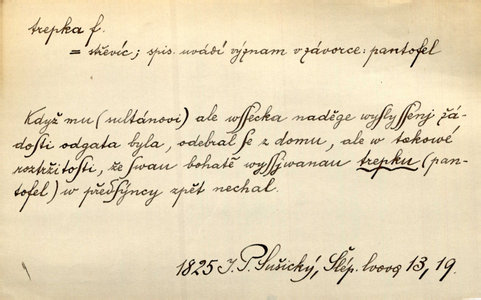 trepka f.
= střevíc; spis. uvádí význam v závorce: pantofel
Když mu (sultánovi) ale wssecka naděge wyslyssenj žá-
dosti odgata byla, odebral se z domu, ale w takowé
roztržitosti, že swau bohatě wyssjwanau trepku (pan-
tofel) w předsýncy zpět nechal.
1825 J. P. Sušický, Slép. 13, 19.